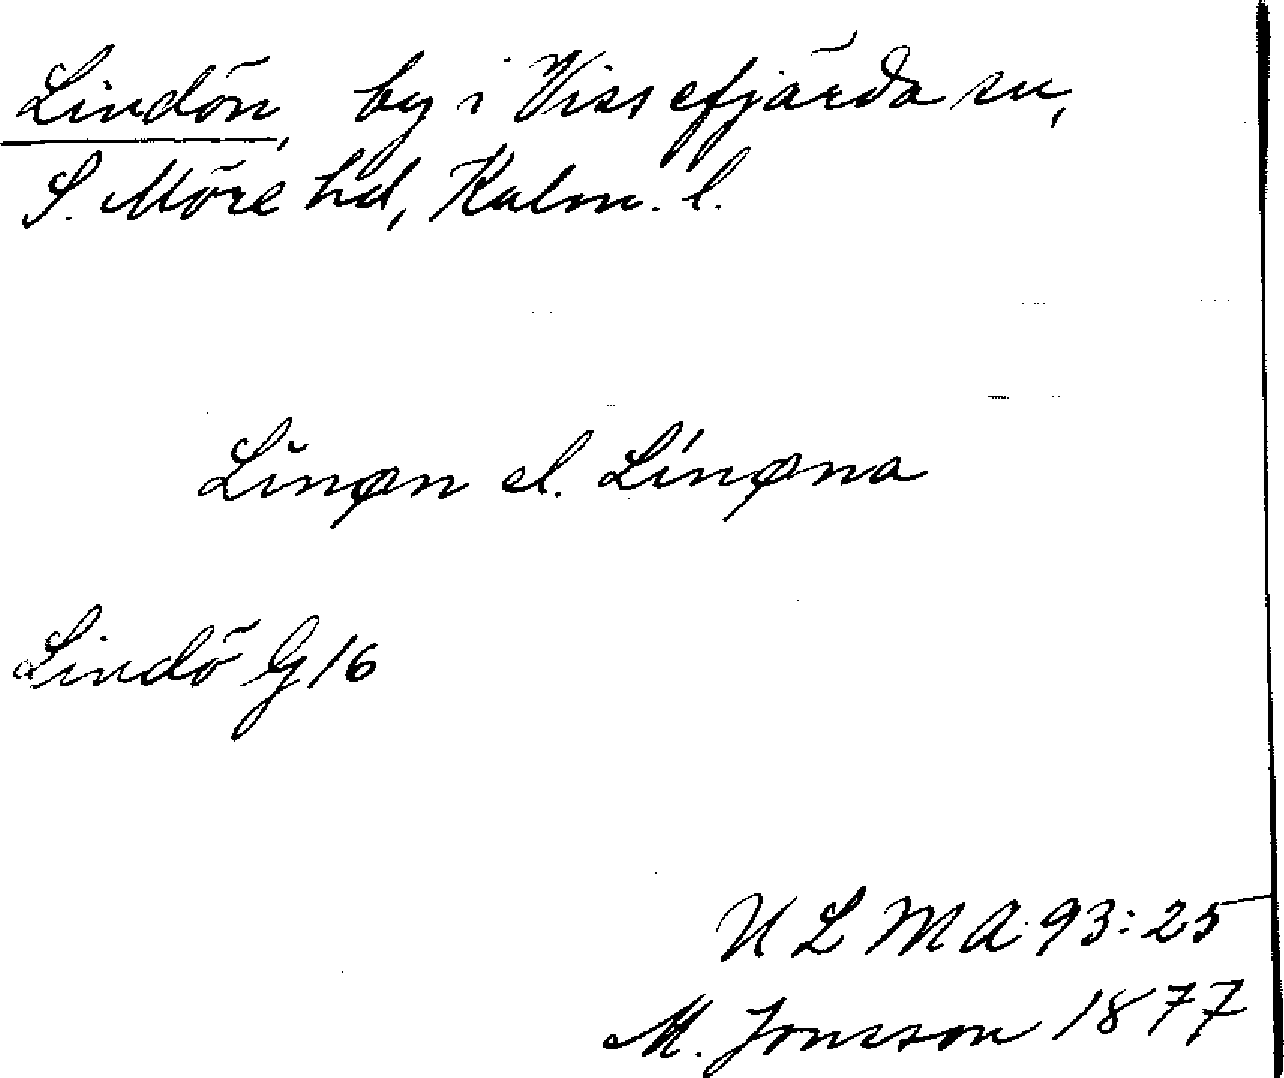 Lindön, by i Vissefjärda sn,
S. Möre hd, Kalm. l.
Linøn el. Linøna
Lindö G 16
ULMA 93:25
M. Jonsson 1877